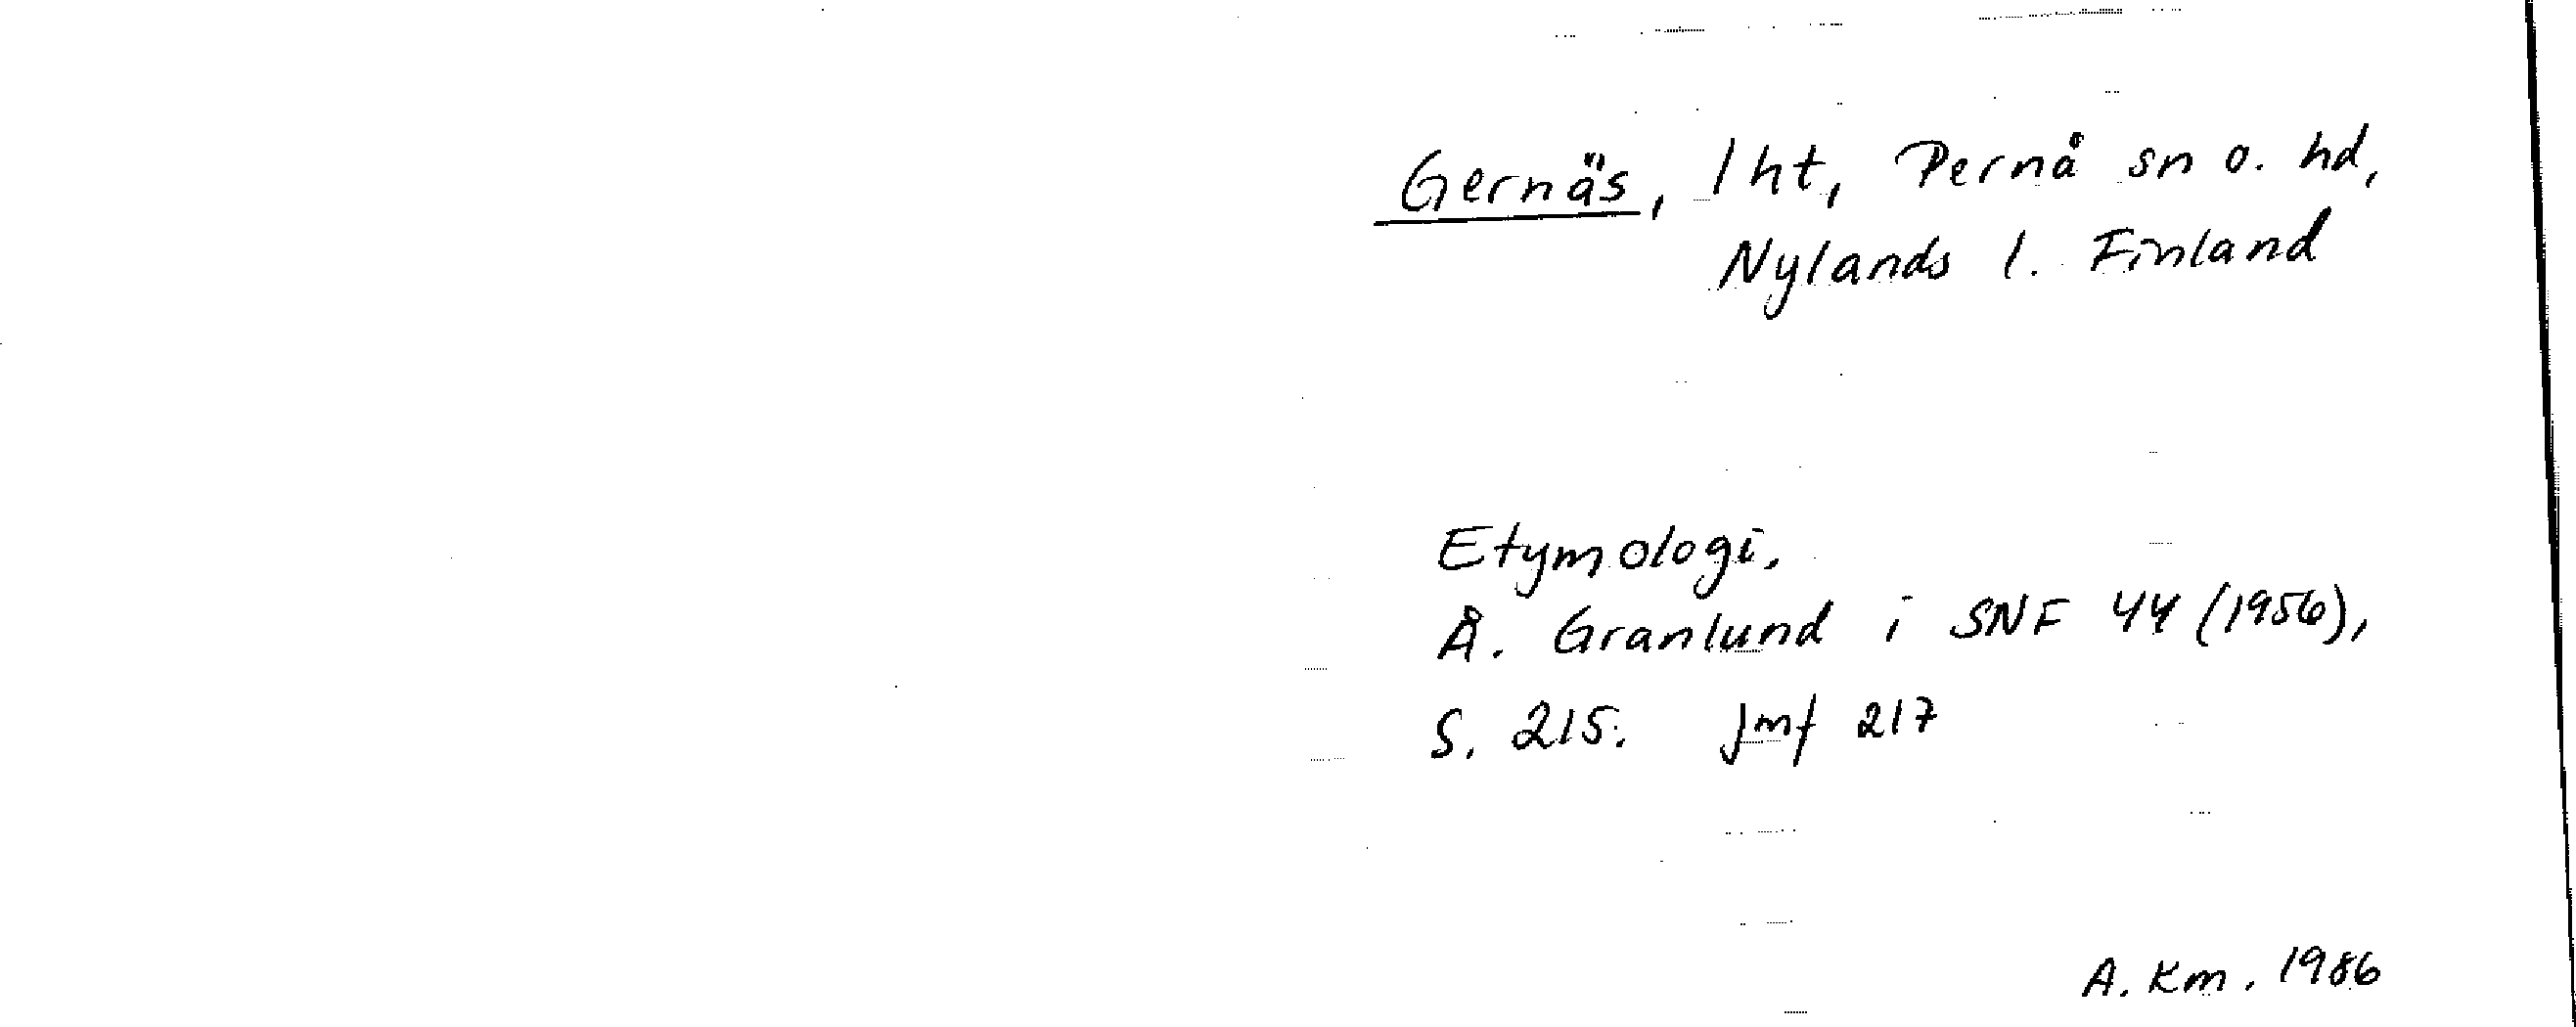 Gernäs, lht, Pernå sn o. hd,
Nylands l. Finland
Etymologi.
Å. Granlund i SNF 44 (1956),
S. 215. jmf 217
A. Km. 1986